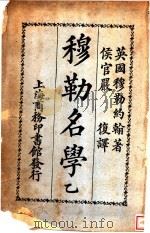 英國穆勒約翰著
侯官嚴 復譯
穆勒名學乙
上海商務印書館發行